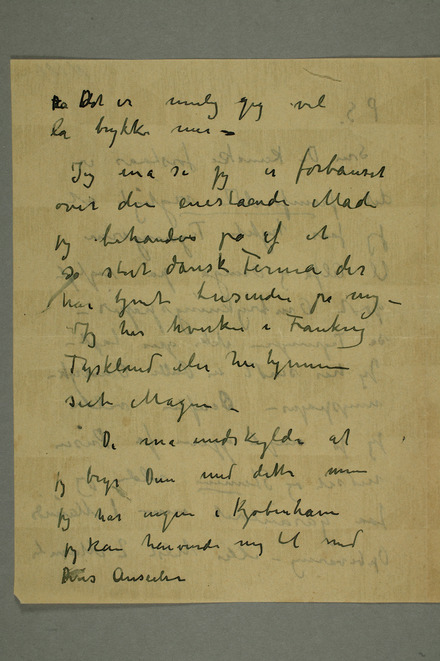 Det er mulig jeg vil
la trykke mer –
Jeg må si jeg er forbauset
over den enestående Måde
jeg behandles på af et
så stort dansk Firma der
har tjent tusinder på mig –
Jeg har hverken i Frankrig
Tyskland eller her hjemme
sett Magen –
De må undskylde at
jeg bryr Dem med dette men
jeg har ingen i Kjøbenhavn
jeg kan henvende mig til med
Deres Anseelse